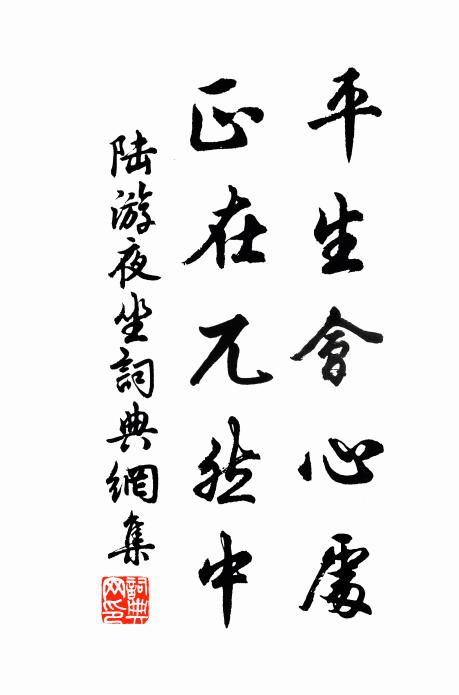 平生會心處
正在兀然中
陸游夜坐詞典網集
詞典網印